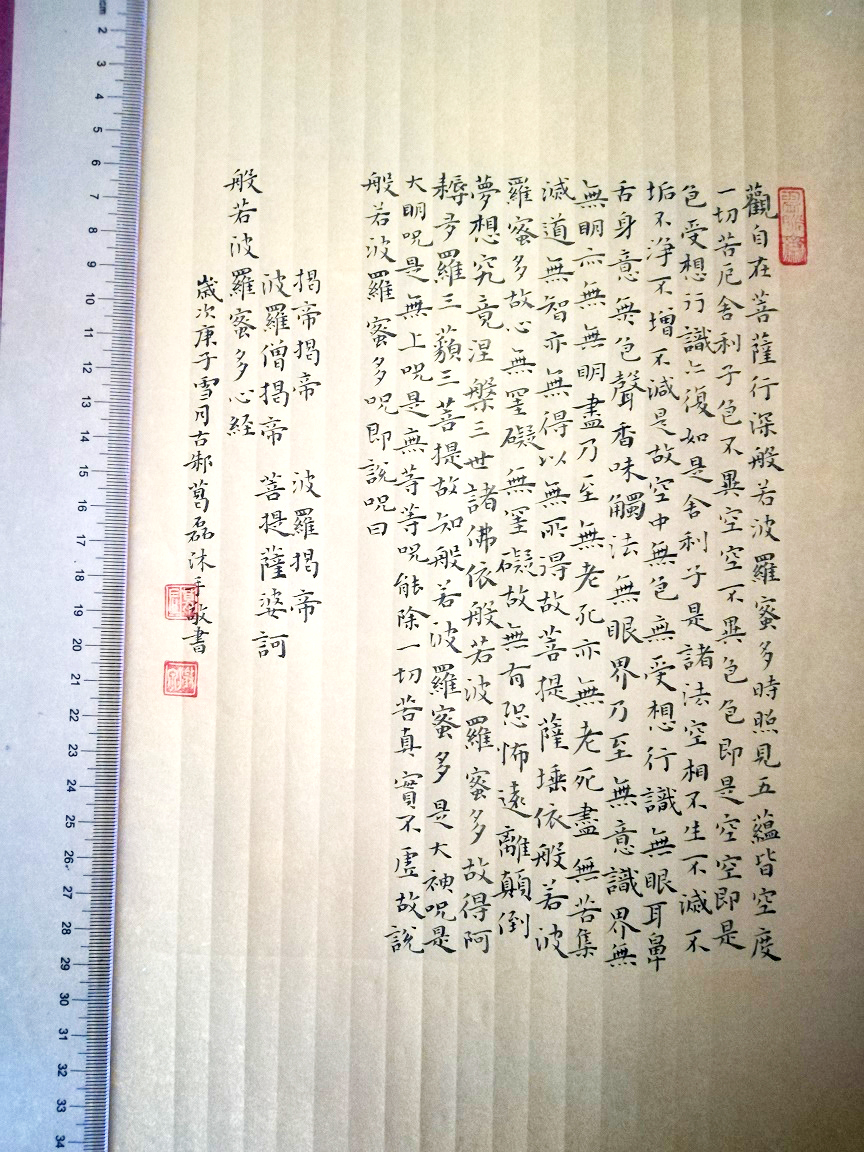 觀自在菩薩行深般若波羅蜜多時照見五蘊皆空度
一切苦厄舍利子色不異空空不異色色即是空空即是
色受想行識亦復如是舍利子是諸法空相不生不滅不
垢不淨不增不減是故空中無色無受想行識無眼耳鼻
舌身意無色聲香味觸法無眼界乃至無意識界無
無明亦無無明盡乃至無老死亦無老死盡無苦集
滅道無智亦無得以無所得故菩提薩埵依般若波
羅蜜多故心無罣礙無罣礙故無有恐怖遠離顛倒
夢想究竟涅槃三世諸佛依般若波羅蜜多故得阿
耨多羅三藐三菩提故知般若波羅蜜多是大神呪是
大明呪是無上呪是無等等呪能除一切苦真實不虛故說
般若波羅蜜多呪即說呪曰
揭帝揭帝 波羅揭帝
波羅僧揭帝 菩提薩婆訶
般若波羅蜜多心経
歲次庚子雪月古邾葛磊沐手敬書
cm
2
3
4
5
6
7
8
9
10
11
12
13
14
15
16
17
18
19
20
21
22
23
24
25
26
27
28
29
30
31
32
33
34